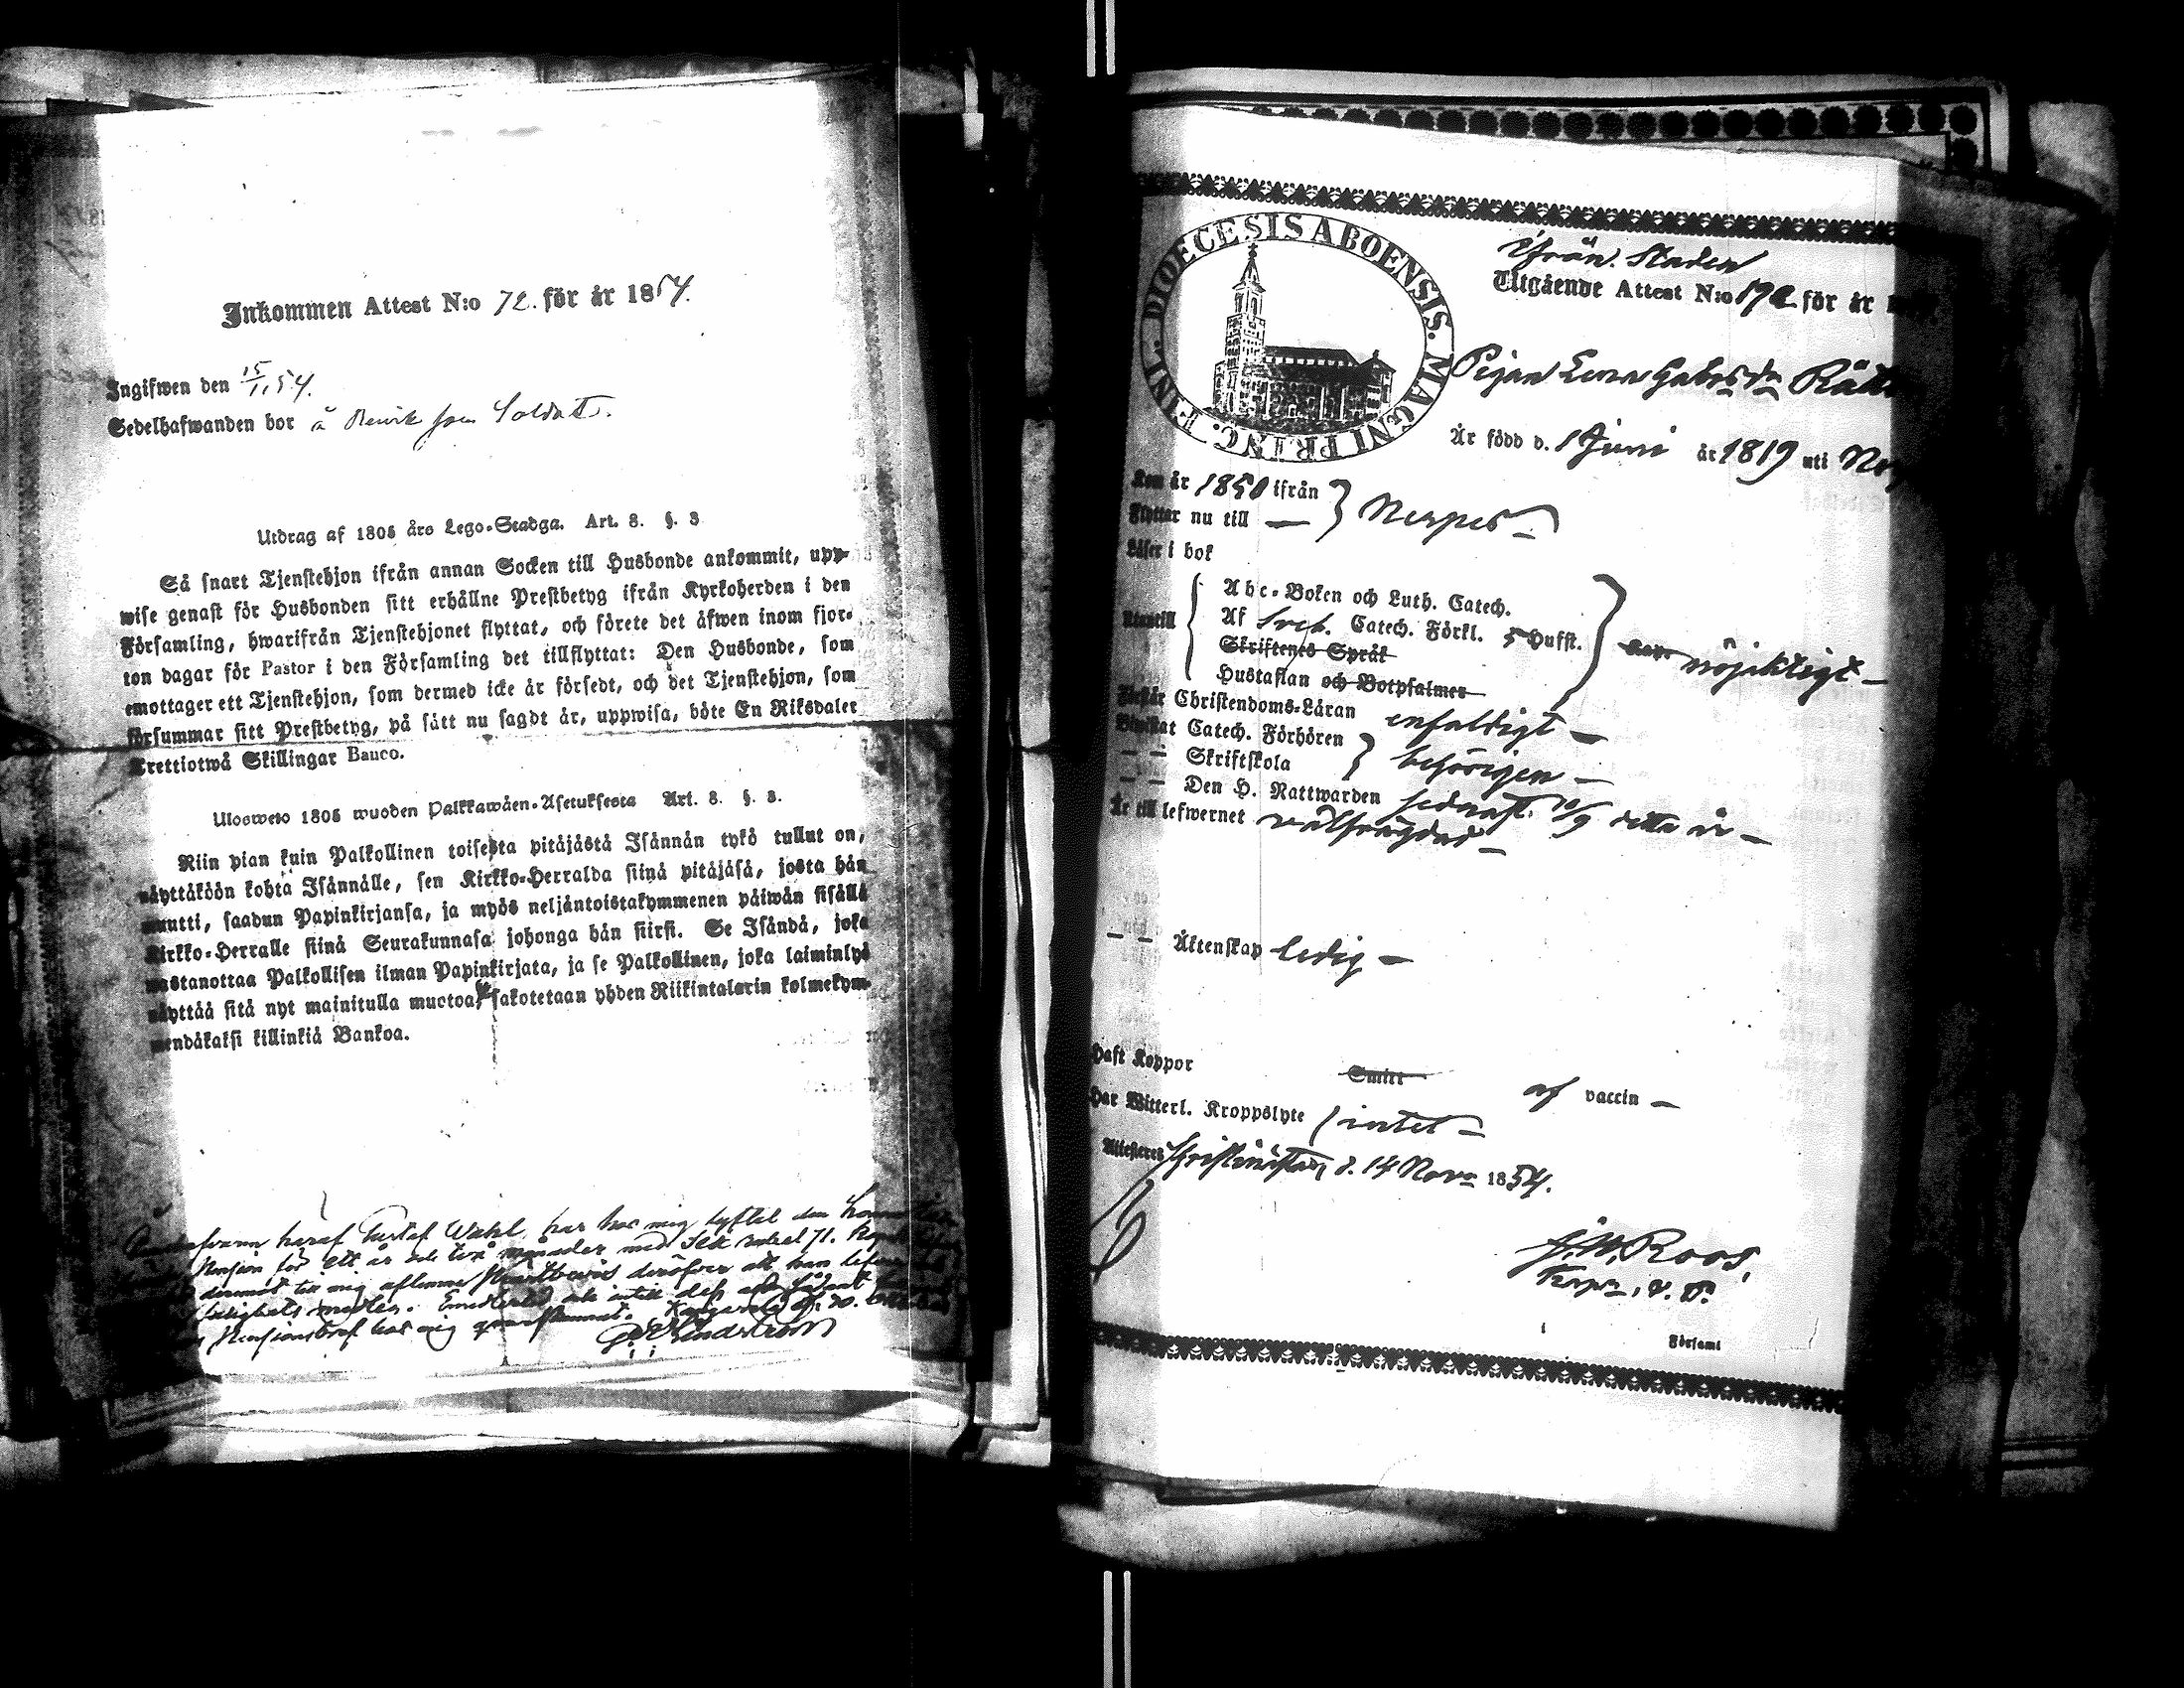 Inkommen Attest N:o 72. för år 1854.
Ingifwen den 15/1, 54.
Sedelhafwanden bor å
Utdrag af 1805 års Lego-Stadga. Art. 8. §. 3
Så snart Tjenstehjon ifrån annan Socken till Husbonde ankommit, upp-
wise genast för Husbonden sitt erhållne Prestbetyg ifrån Kyrkoherden i den
Församling, hwarifrån Tjenstehjonet flyttat, och förete det äfwen inom fjor-
ton dagar för Pastor i den Församling det tillflyttat: Den Husbonde, som
emottager ett Tjenstehjon, som dermed icke är försedt, och det Tjenstehjon, som
försummar sitt Prestbetyg, på sätt nu sagdt är, uppwisa, böte En Riksdaler
Trettiotwå Skillingar Banco.
Ulosweto 1805 wuoden Palkkawäen-Asetuksesta Art. 8. §. 3.
Niin pian kuin Palkollinen toisesta pitäjästä Isännän tykö tullut on,
näyttäköön kohta Isännälle, sen Kirkko-Herralda siinä pitäjäsä, josta hän
muutti, saadun Papinkirjansa, ja myös neljäntoistakymmenen päiwän sisällä
Kirkko-Herralle siinä Seurakunnasa johonga hän siirsi. Se Isändä, joka
wastanottaa Palkollisen ilman Papinkirjata, ja se Palkollinen, joka laiminlyö
näyttää sitä nyt mainitulla muotoa, sakotetaan yhden Riikintalarin kolmekym-
mendäkaksi killinkiä Bankoa.
häraf Gustaf Wahl, har hos mig lyftat den
för ett år och två månader med
till mig aflemna
har mig
DIOECESIS ABOENSIS. MAGNI PRINC. FINL.
Ifrån Staden
Utgående Attest N:o för år
Pigan Gabrsdr
Är född d. 1 Juni år 1819 uti
Kom år 1850 ifrån } Nerpes
Flyttar nu till —
Läser i bok
Utantill
Abc-Boken och Luth. Catech.
Af Sveb. Catech. Förkl. 5 Hufst.
Skriftenes Språk
nöjaktigt —
Hustaflan och Botpsalmer
Förstår Christendoms-Läran enfaldigt —
Bewistat Catech. Förhören
— — Skriftskola } behörigen —
— — Den H. Nattwarden sednast 10/9 detta år —
Är till lefwernet välfrägdad —
— — Äktenskap ledig —
Haft Koppor Smitt af vaccin —
Har Witterl. Kroppslyte intet —
Attesteres Christinestad d. 14 Novr 1854.
J. W. Roos,
Församl